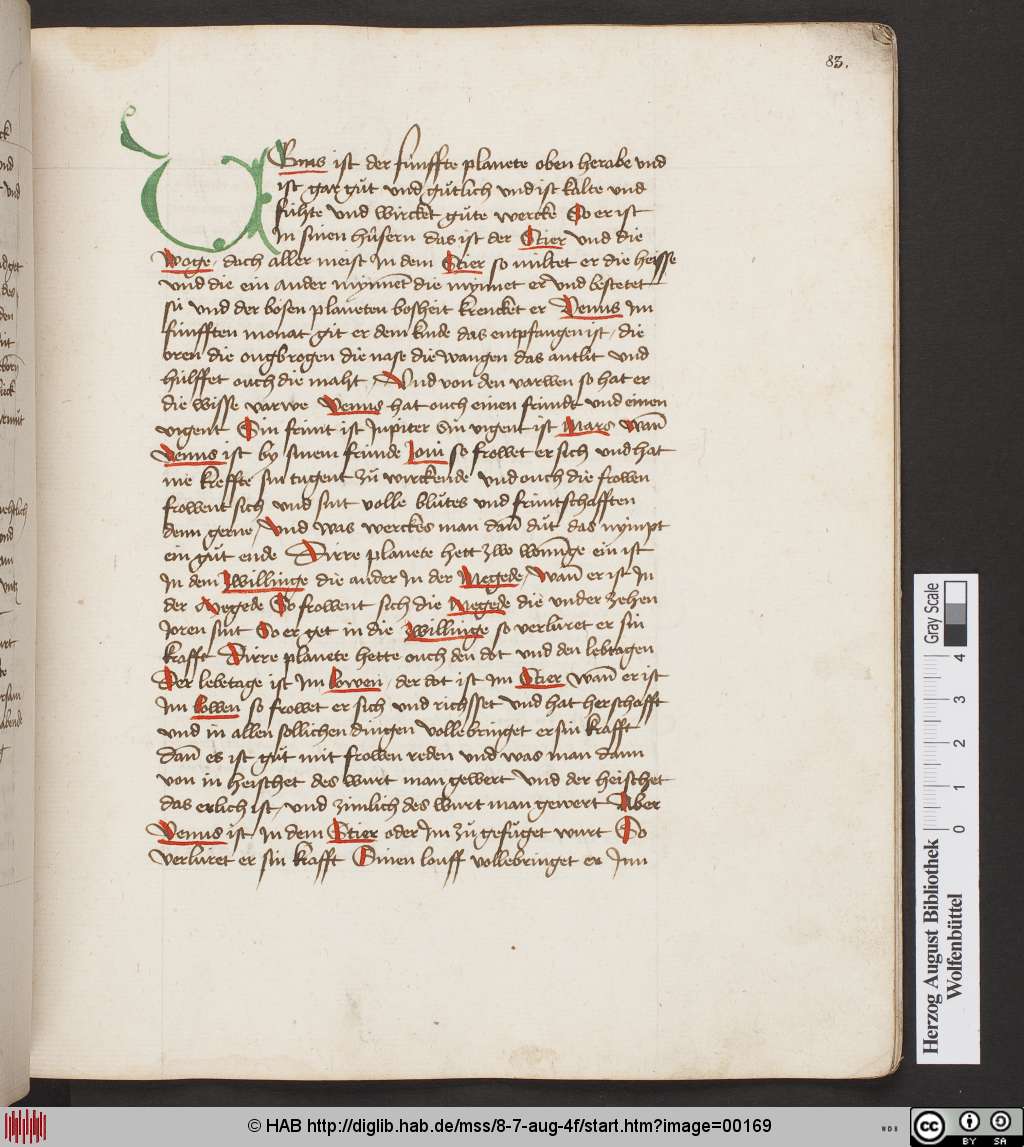 83.
VEnus ist der funffte planete oben herabe vnd
ist gar gůt vnd gůtlich vnd ist kalte vnd
fúhte vnd wircket gůte wercke So er ist
In sinen húsern das ist der Stier vnd die
Woge / doch aller meist In dem Stier so miltet er die heisse
vnd die ein ander mynnet die mynnet er vnd bestetet
sú vnd der bosen planeten bosheit krencket er Venus Im
fúnfften monat git er dem kinde das entpfangen ist / die
oren die ougbrogen die nase die wangen das antlit vnd
húlffet ouch die maht / Vnd von den varwen so hat er
die wisse varwe Venus hat ouch einen frúndt vnd einen
vigent Sin frúnt ist Jupiter Sin vigent ist Mars Wañ
Venus ist by sinem frúnde Joui so frowet er sich vnd hat
me kreffte sin tugent zů wirckende vnd ouch die frowen
frowent sich vnd sint volle blůtes vnd frúntschafften
denn gerne / Vnd was werckes man dañ důt das nympt
ein gůt ende Dirre planete hett zwo wonũge ein ist
In dem Zwillinge die ander In der Megede / Wañ er ist In
der Megede So frowent sich die Megede die vnder zehen
Joren sint So er get in die Zwillinge so verlúret er sin
krafft Dirre planete hette ouch den dot vnd den lebtagen
Der lebetage ist Im Lowen / der dot ist Im Stier Wañ er ist
Im Lowen so frowet er sich vnd richsset vnd hat herschafft
vnd in allen sollichen dingen volle bringet er sin krafft
dañ es ist gůt mit frowen reden vnd was man dann
von in heischet des wurt man gewert vnd der heischet
das erlich ist / vnd zimlich des wurt man gewert Aber
Venus ist In dem Stier oder Im zů gefúget wurt So
verlúret er sin krafft Sinen louff vollebringet er Inn
Gray Scale
0 1 2 3 4
Herzog August Bibliothek
Wolfenbüttel
© HAB http://diglib.hab.de/mss/8-7-aug-4f/start.htm?image=00169
WDB
cc BY SA